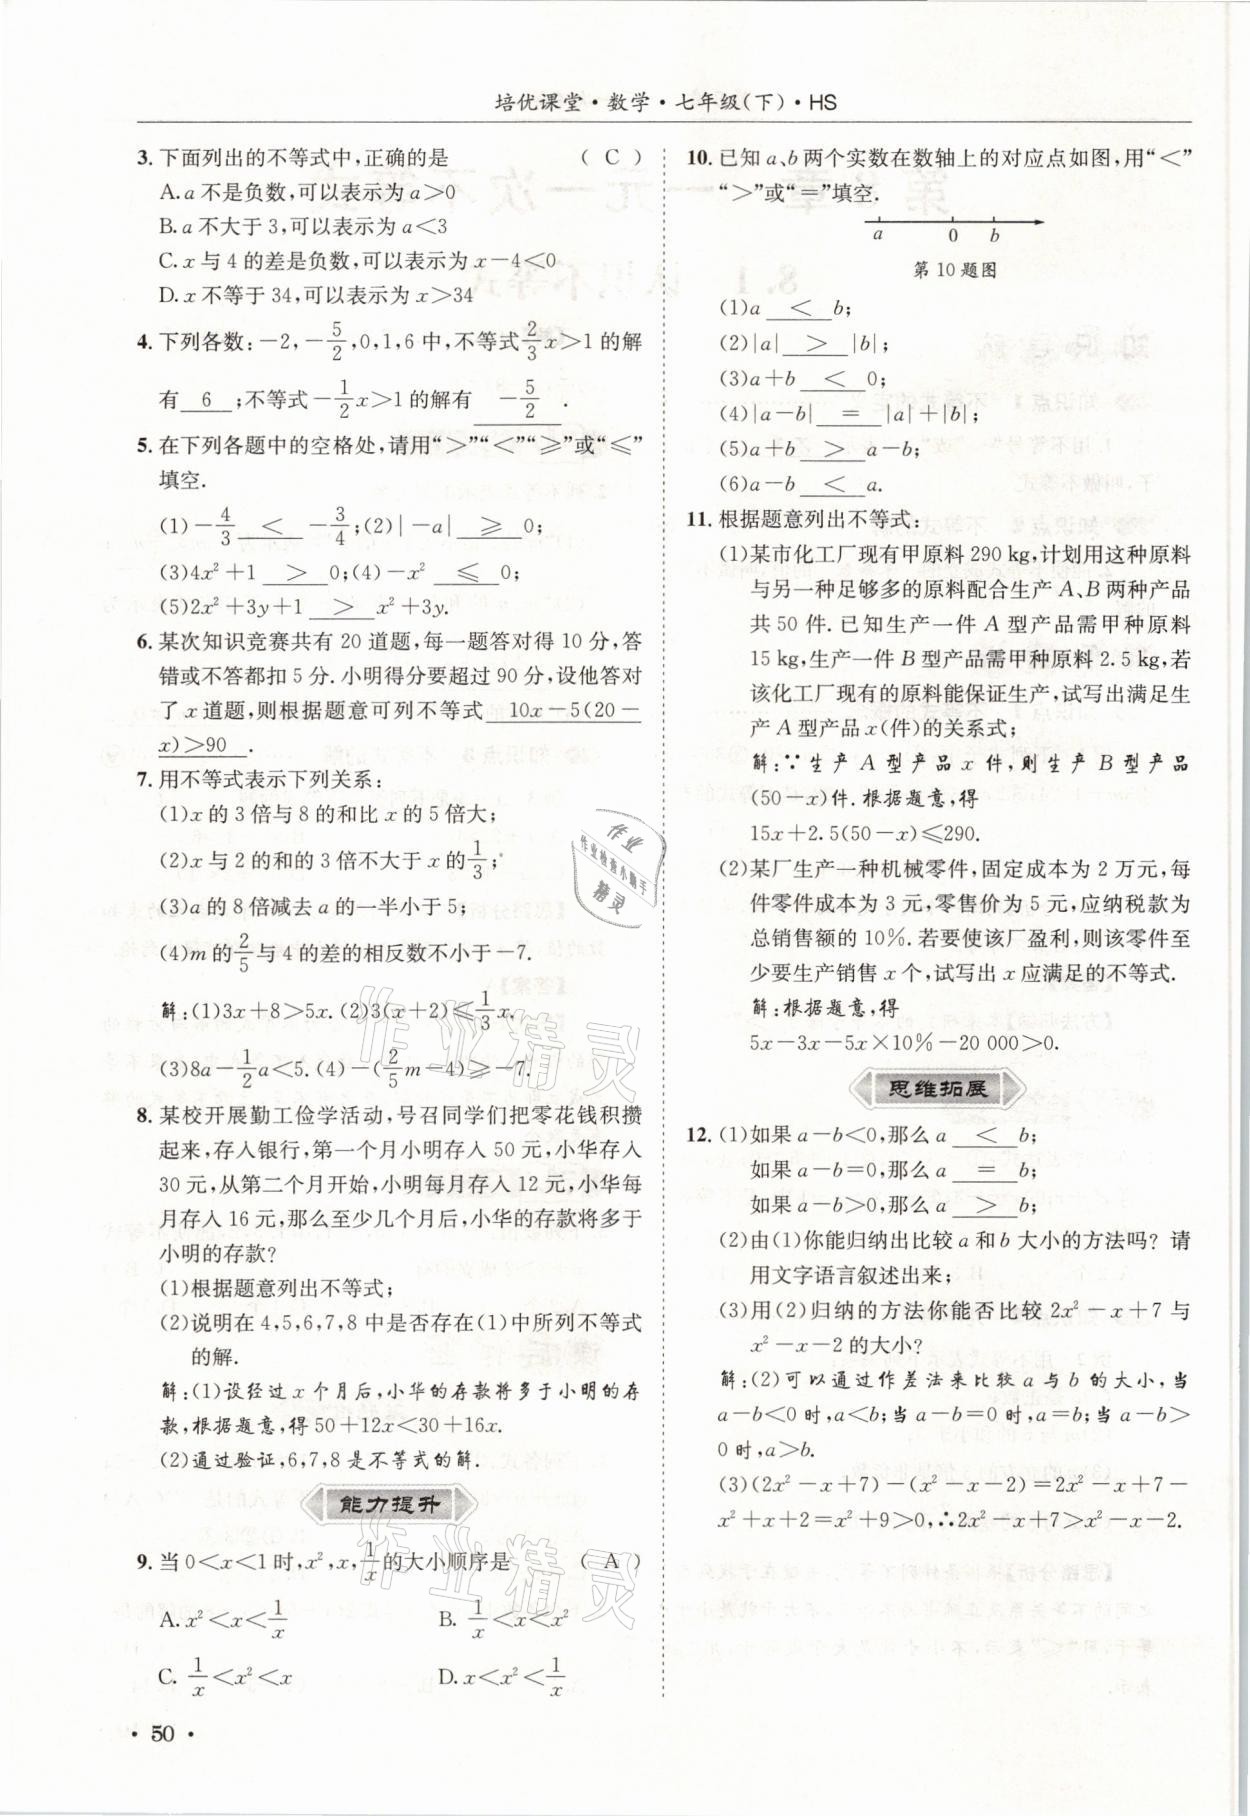 培优课堂·数学·七年级(下)·HS
3. 下面列出的不等式中,正确的是 ( C )
A. a 不是负数,可以表示为 a>0
B. a 不大于 3,可以表示为 a<3
C. x 与 4 的差是负数,可以表示为 x-4<0
D. x 不等于 34,可以表示为 x>34
4. 下列各数:-2,-5/2,0,1,6 中,不等式 2/3 x>1 的解
有 6 ;不等式-1/2 x>1 的解有 -5/2 .
5. 在下列各题中的空格处,请用“>”“<”“≥”或“≤”
填空.
(1)-4/3 < -3/4;(2)|-a| ≥ 0;
(3)4x²+1 > 0;(4)-x² ≤ 0;
(5)2x²+3y+1 > x²+3y.
6. 某次知识竞赛共有 20 道题,每一题答对得 10 分,答
错或不答都扣 5 分. 小明得分要超过 90 分,设他答对
了 x 道题,则根据题意可列不等式 10x-5(20-
x)>90 .
7. 用不等式表示下列关系:
(1)x 的 3 倍与 8 的和比 x 的 5 倍大;
(2)x 与 2 的和的 3 倍不大于 x 的 1/3;
(3)a 的 8 倍减去 a 的一半小于 5;
(4)m 的 2/5 与 4 的差的相反数不小于-7.
解:(1)3x+8>5x. (2)3(x+2)≤1/3 x.
(3)8a-1/2 a<5. (4)-(2/5 m-4)≥-7.
8. 某校开展勤工俭学活动,号召同学们把零花钱积攒
起来,存入银行,第一个月小明存入 50 元,小华存入
30 元,从第二个月开始,小明每月存入 12 元,小华每
月存入 16 元,那么至少几个月后,小华的存款将多于
小明的存款?
(1)根据题意列出不等式;
(2)说明在 4,5,6,7,8 中是否存在(1)中所列不等式
的解.
解:(1)设经过 x 个月后,小华的存款将多于小明的存
款,根据题意,得 50+12x<30+16x.
(2)通过验证,6,7,8 是不等式的解.
能力提升
9. 当 0<x<1 时,x²,x,1/x 的大小顺序是 ( A )
A. x²<x<1/x B. 1/x<x<x²
C. 1/x<x²<x D. x<x²<1/x
· 50 ·
10. 已知 a、b 两个实数在数轴上的对应点如图,用“<”
“>”或“=”填空.
a 0 b
第 10 题图
(1)a < b;
(2)|a| > |b|;
(3)a+b < 0;
(4)|a-b| = |a|+|b|;
(5)a+b > a-b;
(6)a-b < a.
11. 根据题意列出不等式:
(1)某市化工厂现有甲原料 290 kg,计划用这种原料
与另一种足够多的原料配合生产 A、B 两种产品
共 50 件. 已知生产一件 A 型产品需甲种原料
15 kg,生产一件 B 型产品需甲种原料 2.5 kg,若
该化工厂现有的原料能保证生产,试写出满足生
产 A 型产品 x(件)的关系式;
解:∵生产 A 型产品 x 件,则生产 B 型产品
(50-x)件. 根据题意,得
15x+2.5(50-x)≤290.
(2)某厂生产一种机械零件,固定成本为 2 万元,每
件零件成本为 3 元,零售价为 5 元,应纳税款为
总销售额的 10%. 若要使该厂盈利,则该零件至
少要生产销售 x 个,试写出 x 应满足的不等式.
解:根据题意,得
5x-3x-5x×10%-20 000>0.
思维拓展
12. (1)如果 a-b<0,那么 a < b;
如果 a-b=0,那么 a = b;
如果 a-b>0,那么 a > b;
(2)由(1)你能归纳出比较 a 和 b 大小的方法吗? 请
用文字语言叙述出来;
(3)用(2)归纳的方法你能否比较 2x²-x+7 与
x²-x-2 的大小?
解:(2)可以通过作差法来比较 a 与 b 的大小,当
a-b<0 时,a<b;当 a-b=0 时,a=b;当 a-b>
0 时,a>b.
(3)(2x²-x+7)-(x²-x-2)=2x²-x+7-
x²+x+2=x²+9>0,∴2x²-x+7>x²-x-2.
作业
作业检查小助手
精灵
作业精灵
作业精灵